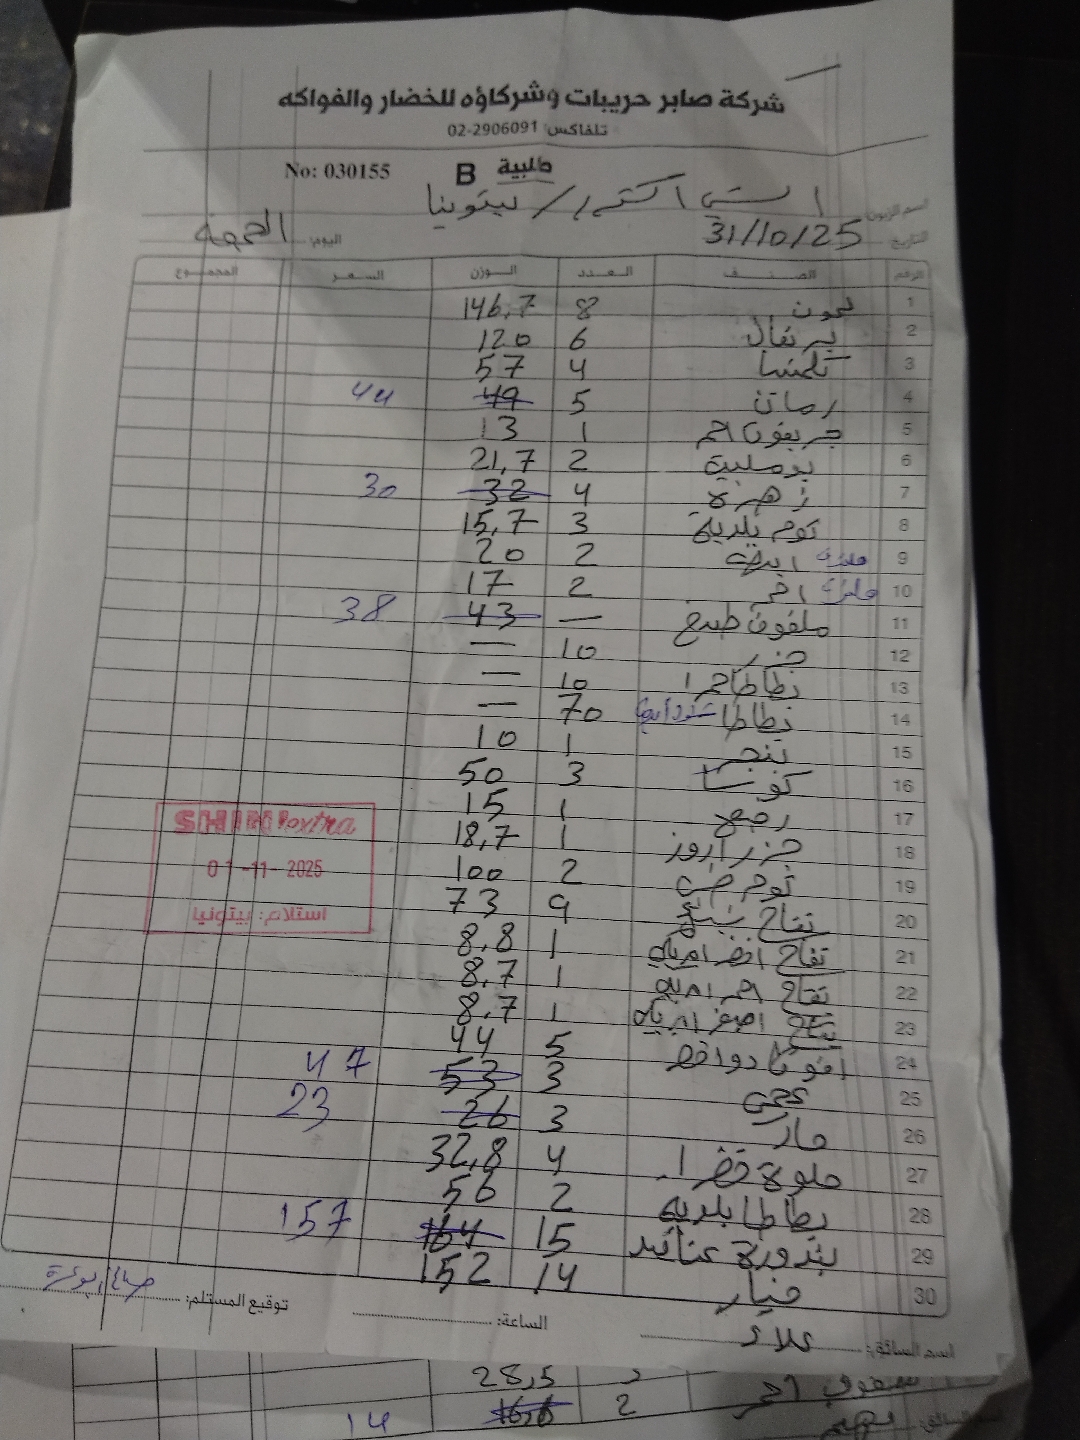 شركة صابر حريبات وشركاؤه للخضار والفواكه
تلفاكس: 02-2906091
No: 030155 B طلبية
اسم الزبون: الشني اكسترا / بيتونيا
التاريخ: 31/10/25 اليوم: الجمعة
الرقم الصنف العدد الوزن السعر المجموع
1 ليمون 8 146,7
2 برتقال 6 120
3 4 57
4 رمان 5 49 44
5 جريفون احمر 1 13
6 بوملية 2 21,7
7 زهرة 4 32 30
8 ثوم بلدية 3 15,7
9 2 20
10 2 17
11 ملفوف طبيخ — 43 38
12 جزر 10 —
13 بطاطا حمرا 10 —
14 بطاطا 70 —
15 بنجر 1 10
16 كوسا 3 50
17 1 15
18 جزر اروز 1 18,7
19 2 100
20 تفاح 9 73
21 تفاح اخضر 1 8,8
22 تفاح احمر 1 8,7
23 تفاح اصفر 1 8,7
24 افوكادو اخضر 5 44
25 3 53 47
26 حار 3 26 23
27 حلوة خضرا 4 32,8
28 بطاطا بلدية 2 56
29 بندورة عناقيد 15 164 157
30 خيار 14 152
SHINI extra
01-11-2025
استلام: بيتونيا
اسم السائق: علاء الساعة: توقيع المستلم:
28,5
2 16,6 14